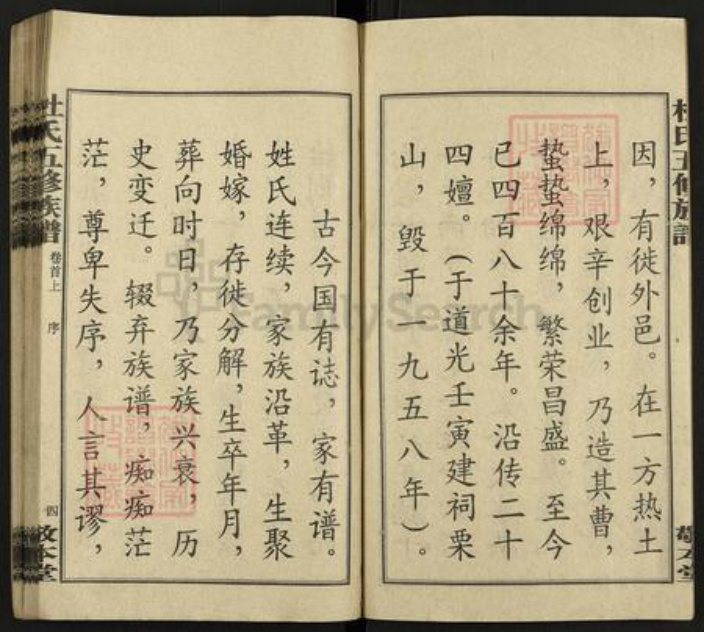 因，有徙外邑。在一方热土
上，艰辛创业，乃造其曹，
蛰蛰绵绵，繁荣昌盛。至今
已四百八十余年。沿传二十
四嬗。（于道光壬寅建祠栗
山，毁于一九五八年）。
古今国有誌，家有谱。
姓氏连续，家族沿革，生聚
婚嫁，存徙分解，生卒年月，
葬向时日，乃家族兴衰，历
史变迁。辍弃族谱，痴痴茫
茫，尊卑失序，人言其谬，
杜氏五修族譜
卷首上 序
四
敬本堂
杜氏五修族譜
敬本堂
FamilySearch